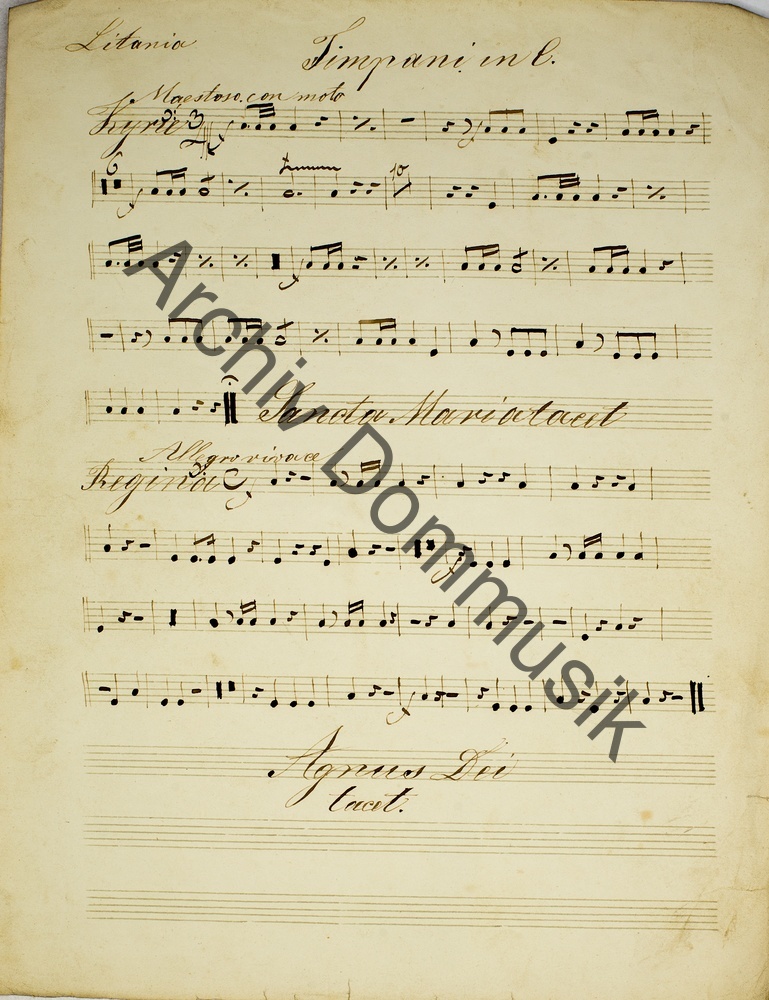 Litania
Timpani in C.
Maestoso. con moto
Kyrie
6
10
Sancta Maria tacet
Allegro vivace
Regina
Agnus Dei
tacet.
Archiv Dommusik